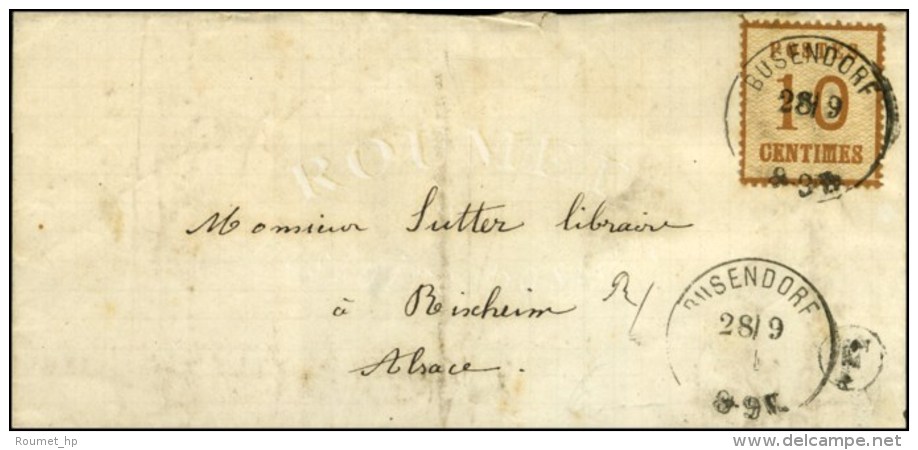 POSTES
10
CENTIMES
BUSENDORF
28/9
Monsieur Sutter libraire
à Rixheim R/
Alsace.
BUSENDORF
28/9
1
ROUMET
Roumet_hp
www.delcampe.net